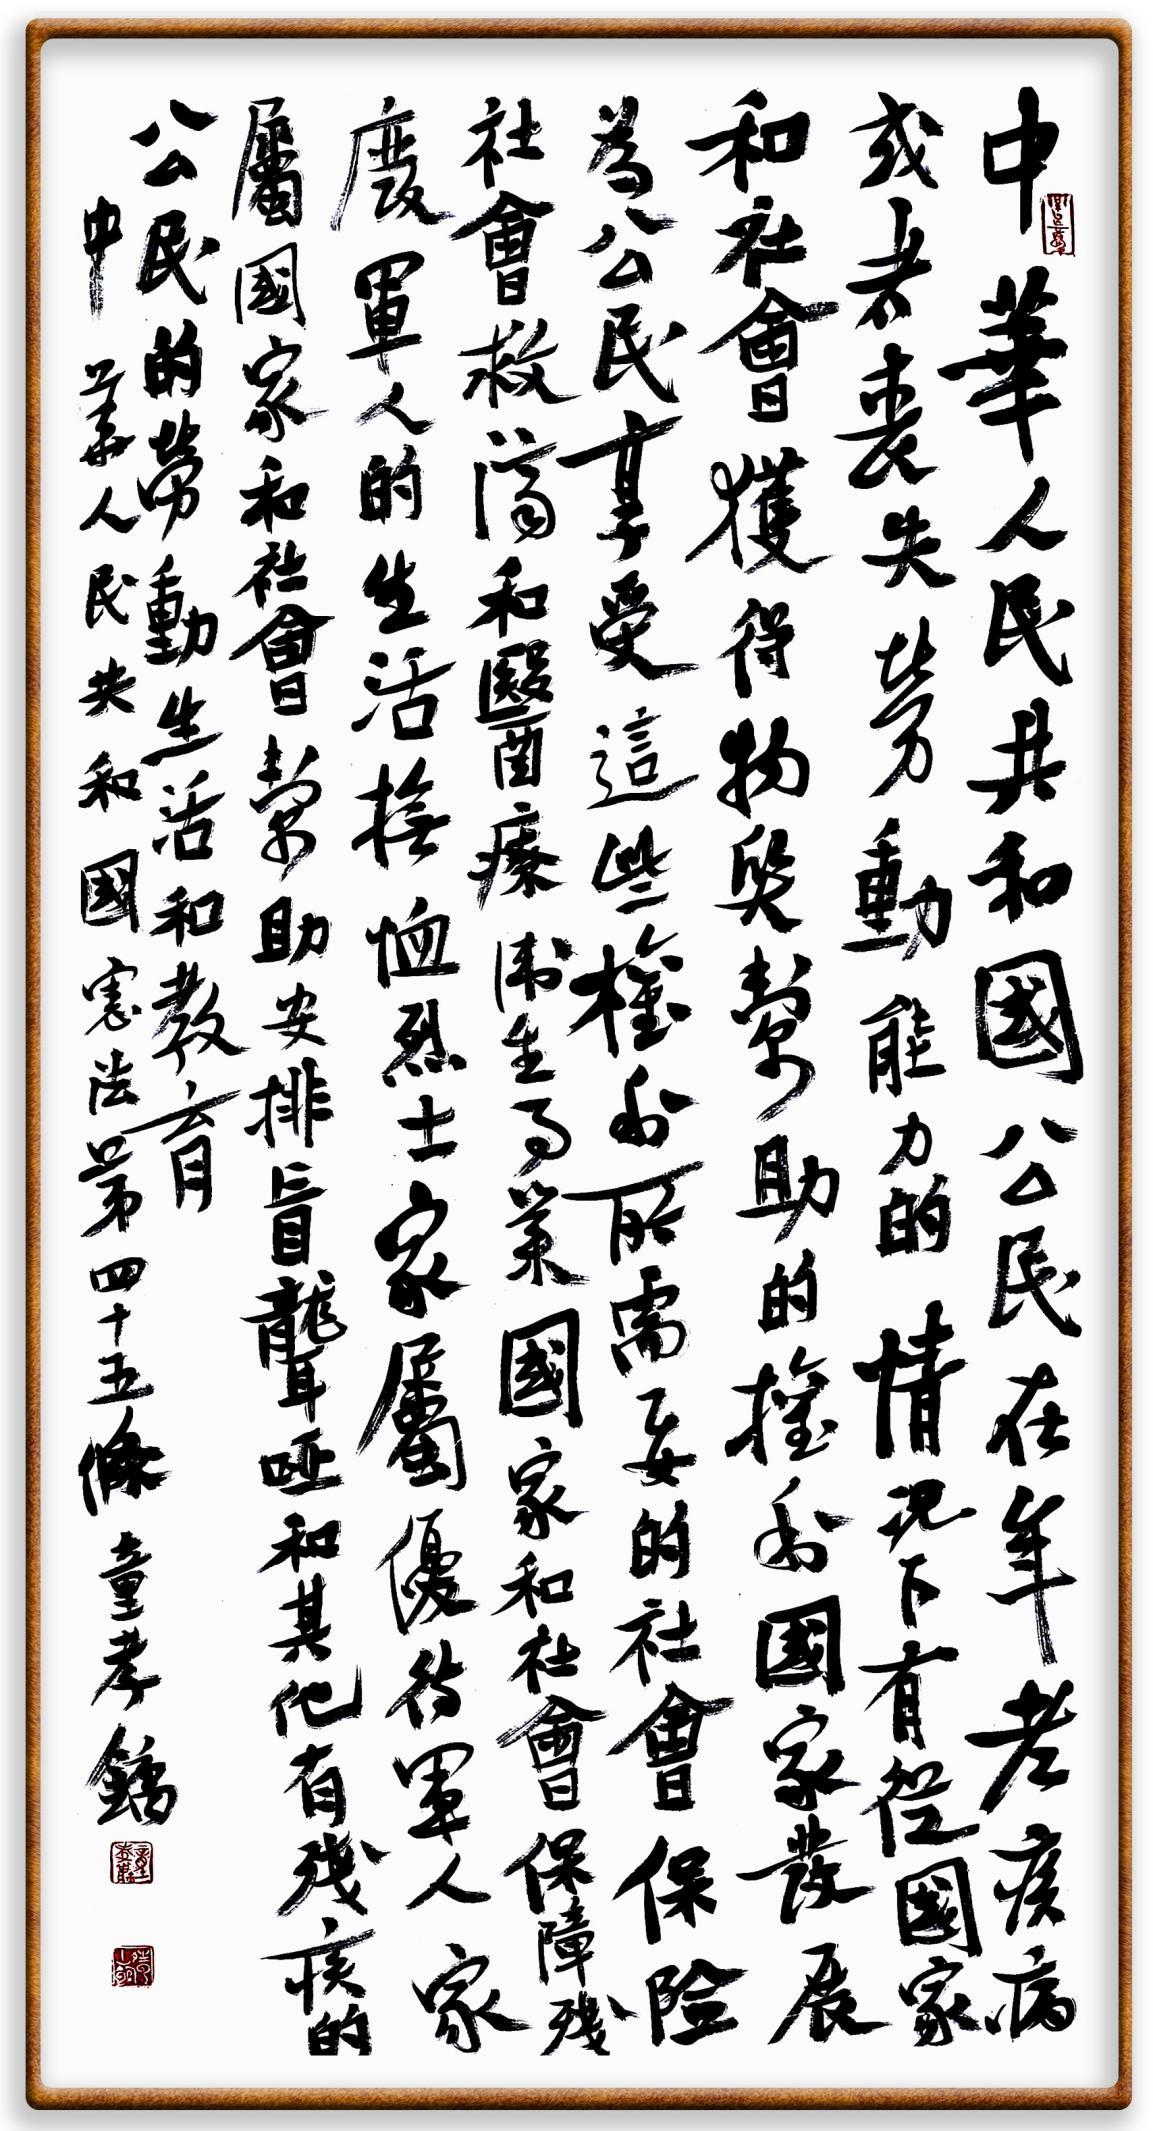 中華人民共和國公民在年老疾病
或者喪失勞動能力的情況下有從國家
和社會獲得物質幫助的權利國家發展
為公民享受這些權利所需要的社會保險
社會救濟和醫療衛生事業國家和社會保障殘
廢軍人的生活撫恤烈士家屬優待軍人家
屬國家和社會幫助安排盲聾啞和其他有殘疾的
公民的勞動生活和教育
中華人民共和國憲法第四十五條童孝鏞